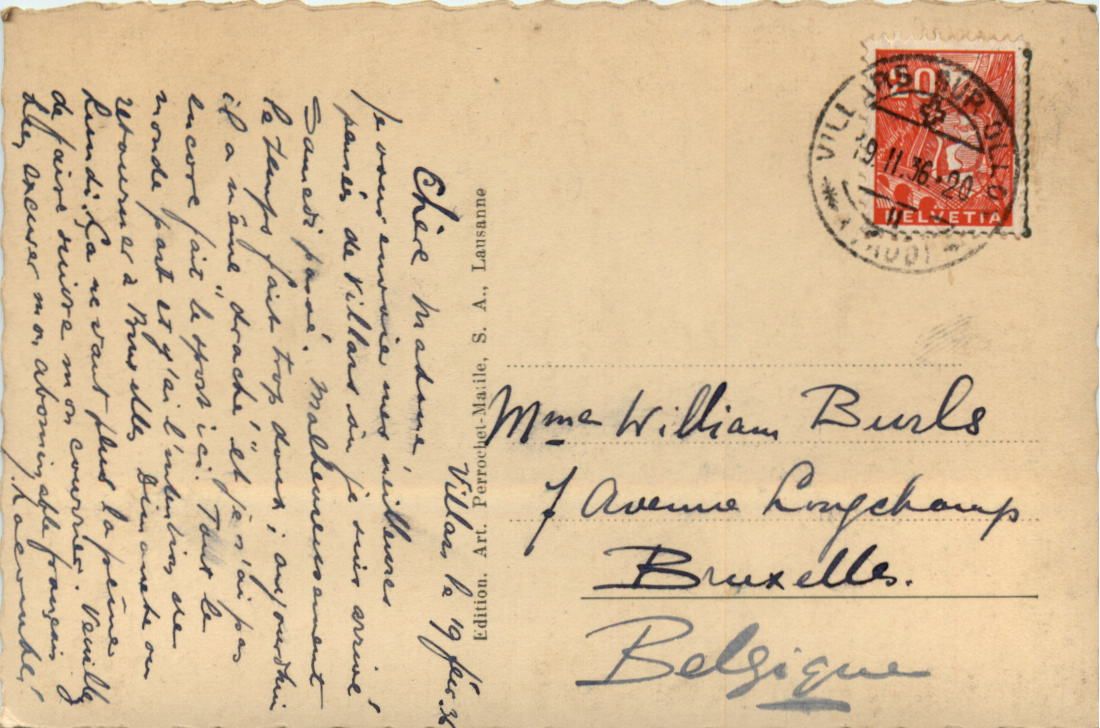 Villars, le 19 fév. 36
Chère Madame,
Je vous envoie mes meilleures
pensées de Villars où je suis arrivé
Samedi passé. Malheureusement
le temps fait trop doux ; aujourdhui
il a même "draché" et je n'ai pas
encore fait le sport ici. Tout le
monde part et j'ai l'intention de
retourner à Bruxelles Dimanche ou
Lundi. Ça ne vaut plus la peine
de faire suivre mon courrier. Veuillez
excuser mon abominable français
Edition. Art. Perrochet-Matile, S. A., Lausanne
20
HELVETIA
VILLARS SUR OLLON
19.II.36-20
(VAUD)
Mme William Burls
7 Avenue Longchamp
Bruxelles.
Belgique